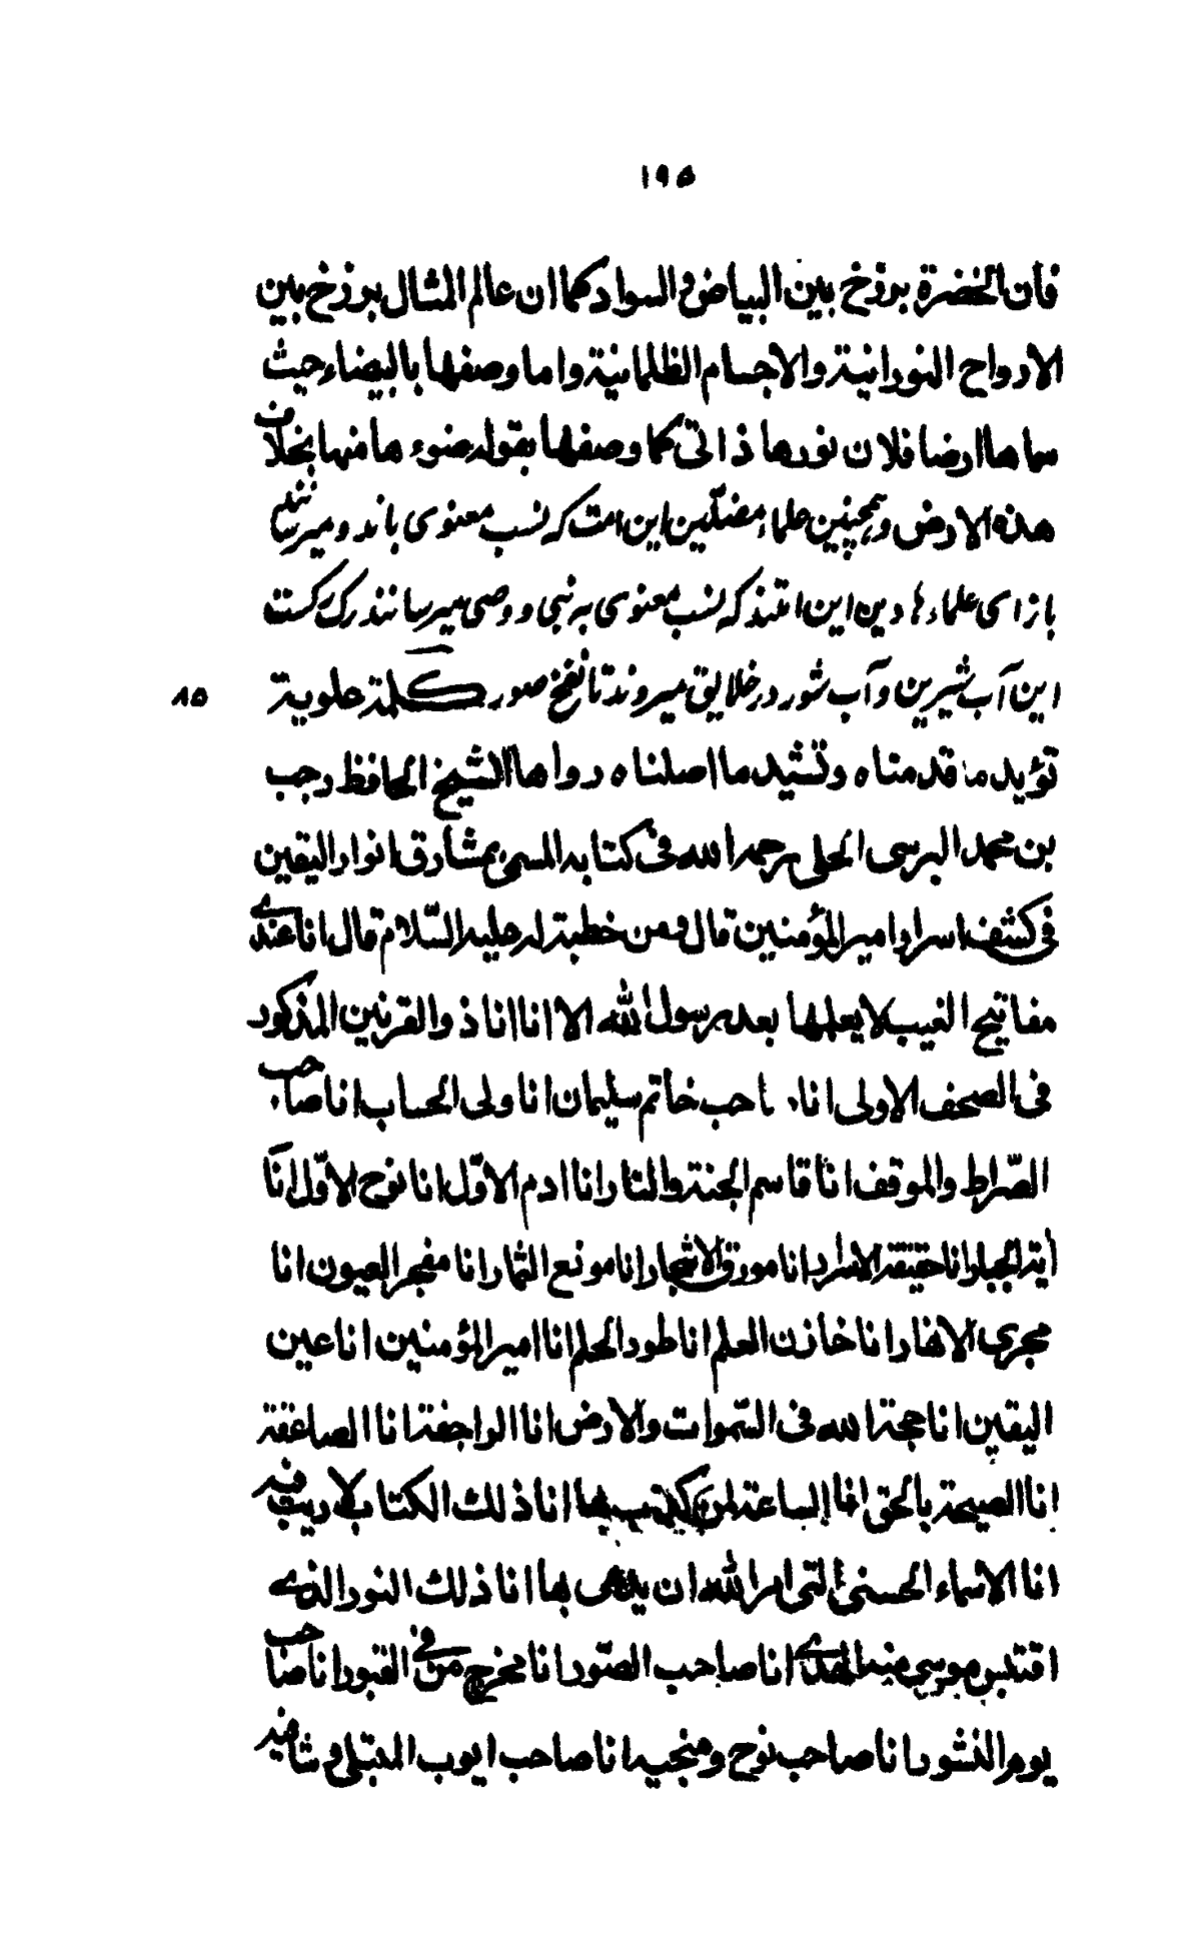 ۱۹۵
فان الخضرة برزخ بین البیاض و السواد کما ان عالم المثال برزخ بین
الارواح النورانیة والاجسام الظلمانیة واما وصفها بالبیضاء حیث
سماها ارضا فلان نورها ذاتی کما وصفها بقوله ضوء ها منها بخلاف
هذه الارض و همچنین علماء مضلّین این امت که نسب معنوی باند و میرسانند
بازای علماء ها دین این امتند که نسب معنوی به نبی و وصی میرسانند رک رکست
این آب شیرین و آب شور در خلایق میروند تا نفخ صور کلمة علویة
۸۵
تؤید ما قدمناه وتشید ما اصلناه رواها الشیخ الحافظ رجب
بن محمد البرسی الحلی رحمه الله فی کتابه المسمی بمشارق انوار الیقین
فی کشف اسرار امیر المؤمنین قال ومن خطبة له علیه السّلام قال انا عندی
مفاتیح الغیب لا یعلمها بعد رسول الله الا انا انا ذو القرنین المذکور
فی الصحف الاولی انا صاحب خاتم سلیمان انا ولی الحساب انا صاحب
الصّراط والموقف انا قاسم الجنة والنار انا ادم الاوّل انا نوح الاوّل انا
ایة الجبار انا حقیقة الاسرار انا مورق الاشجار انا مونع الثمار انا مفجر العیون انا
مجری الانهار انا خازن العلم انا طود الحلم انا امیر المؤمنین انا عین
الیقین انا حجة الله فی السّموات والارض انا الراجفة انا الصاعقة
انا الصیحة بالحق انا الساعة لمن کذب بها انا ذلك الکتاب لا ریب فیه
انا الاسماء الحسنی التی امر الله ان یدعی بها انا ذلك النور الذی
اقتبس موسی منه الهدی انا صاحب الصّور انا مخرج من فی القبور انا صاحب
یوم النشور انا صاحب نوح ومنجیه انا صاحب ایوب المبتلی و شافیه